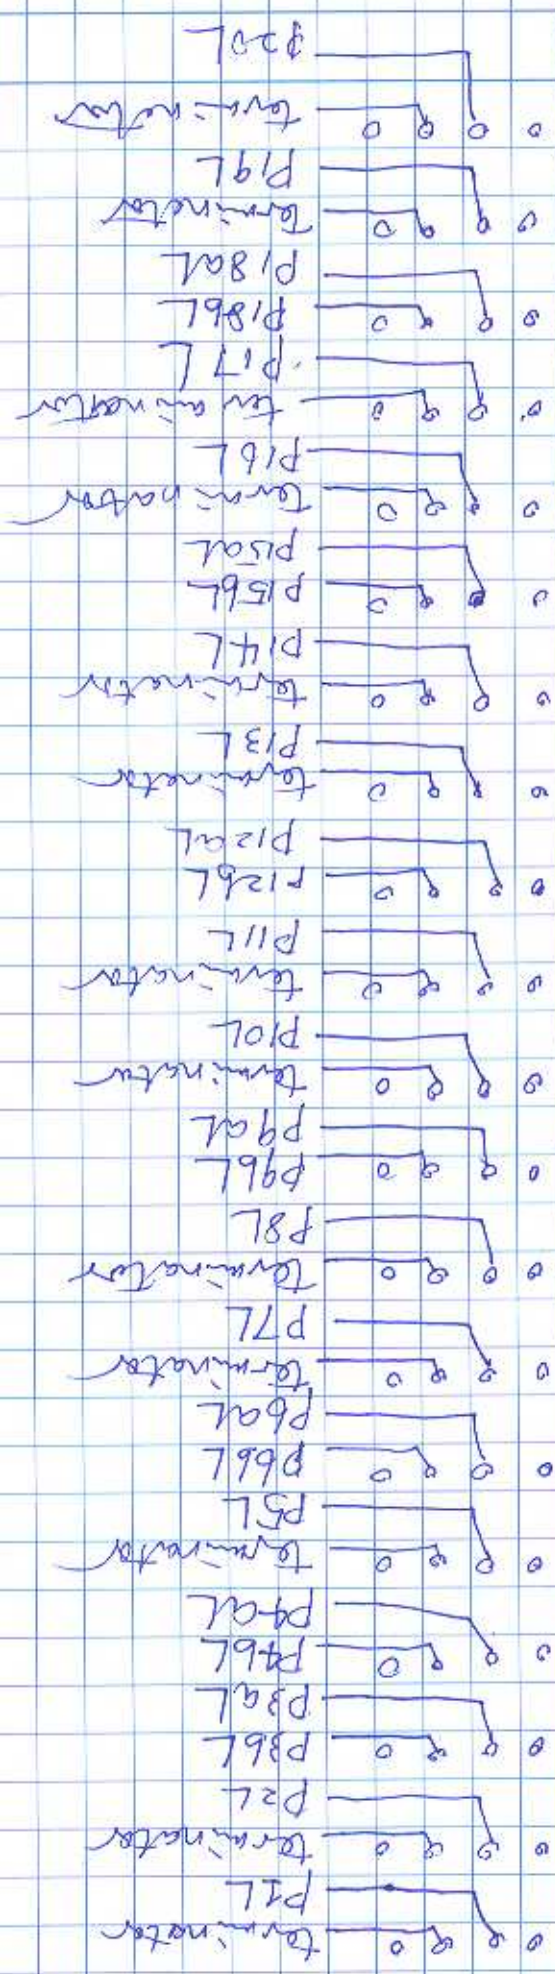 terminator
P1L
terminator
P2L
P3bL
P3aL
P4bL
P4aL
terminator
P5L
P6bL
P6aL
terminator
P7L
terminator
P8L
P9bL
P9aL
terminator
P10L
terminator
P11L
P12bL
P12aL
terminator
P13L
terminator
P14L
P15bL
P15aL
terminator
P16L
terminator
P17L
P18bL
P18aL
terminator
P19L
terminator
P20L